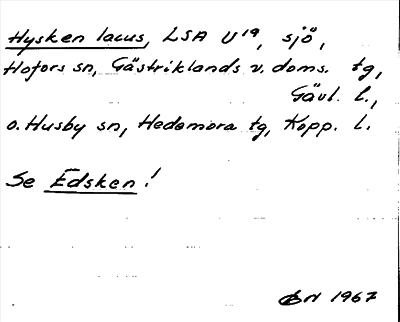 Hysken lacus, LSA U¹⁹, sjö,
Hofors sn, Gästriklands v. doms. tg,
Gävl. l.,
o. Husby sn, Hedemora tg, Kopp. l.
Se Edsken!
1967